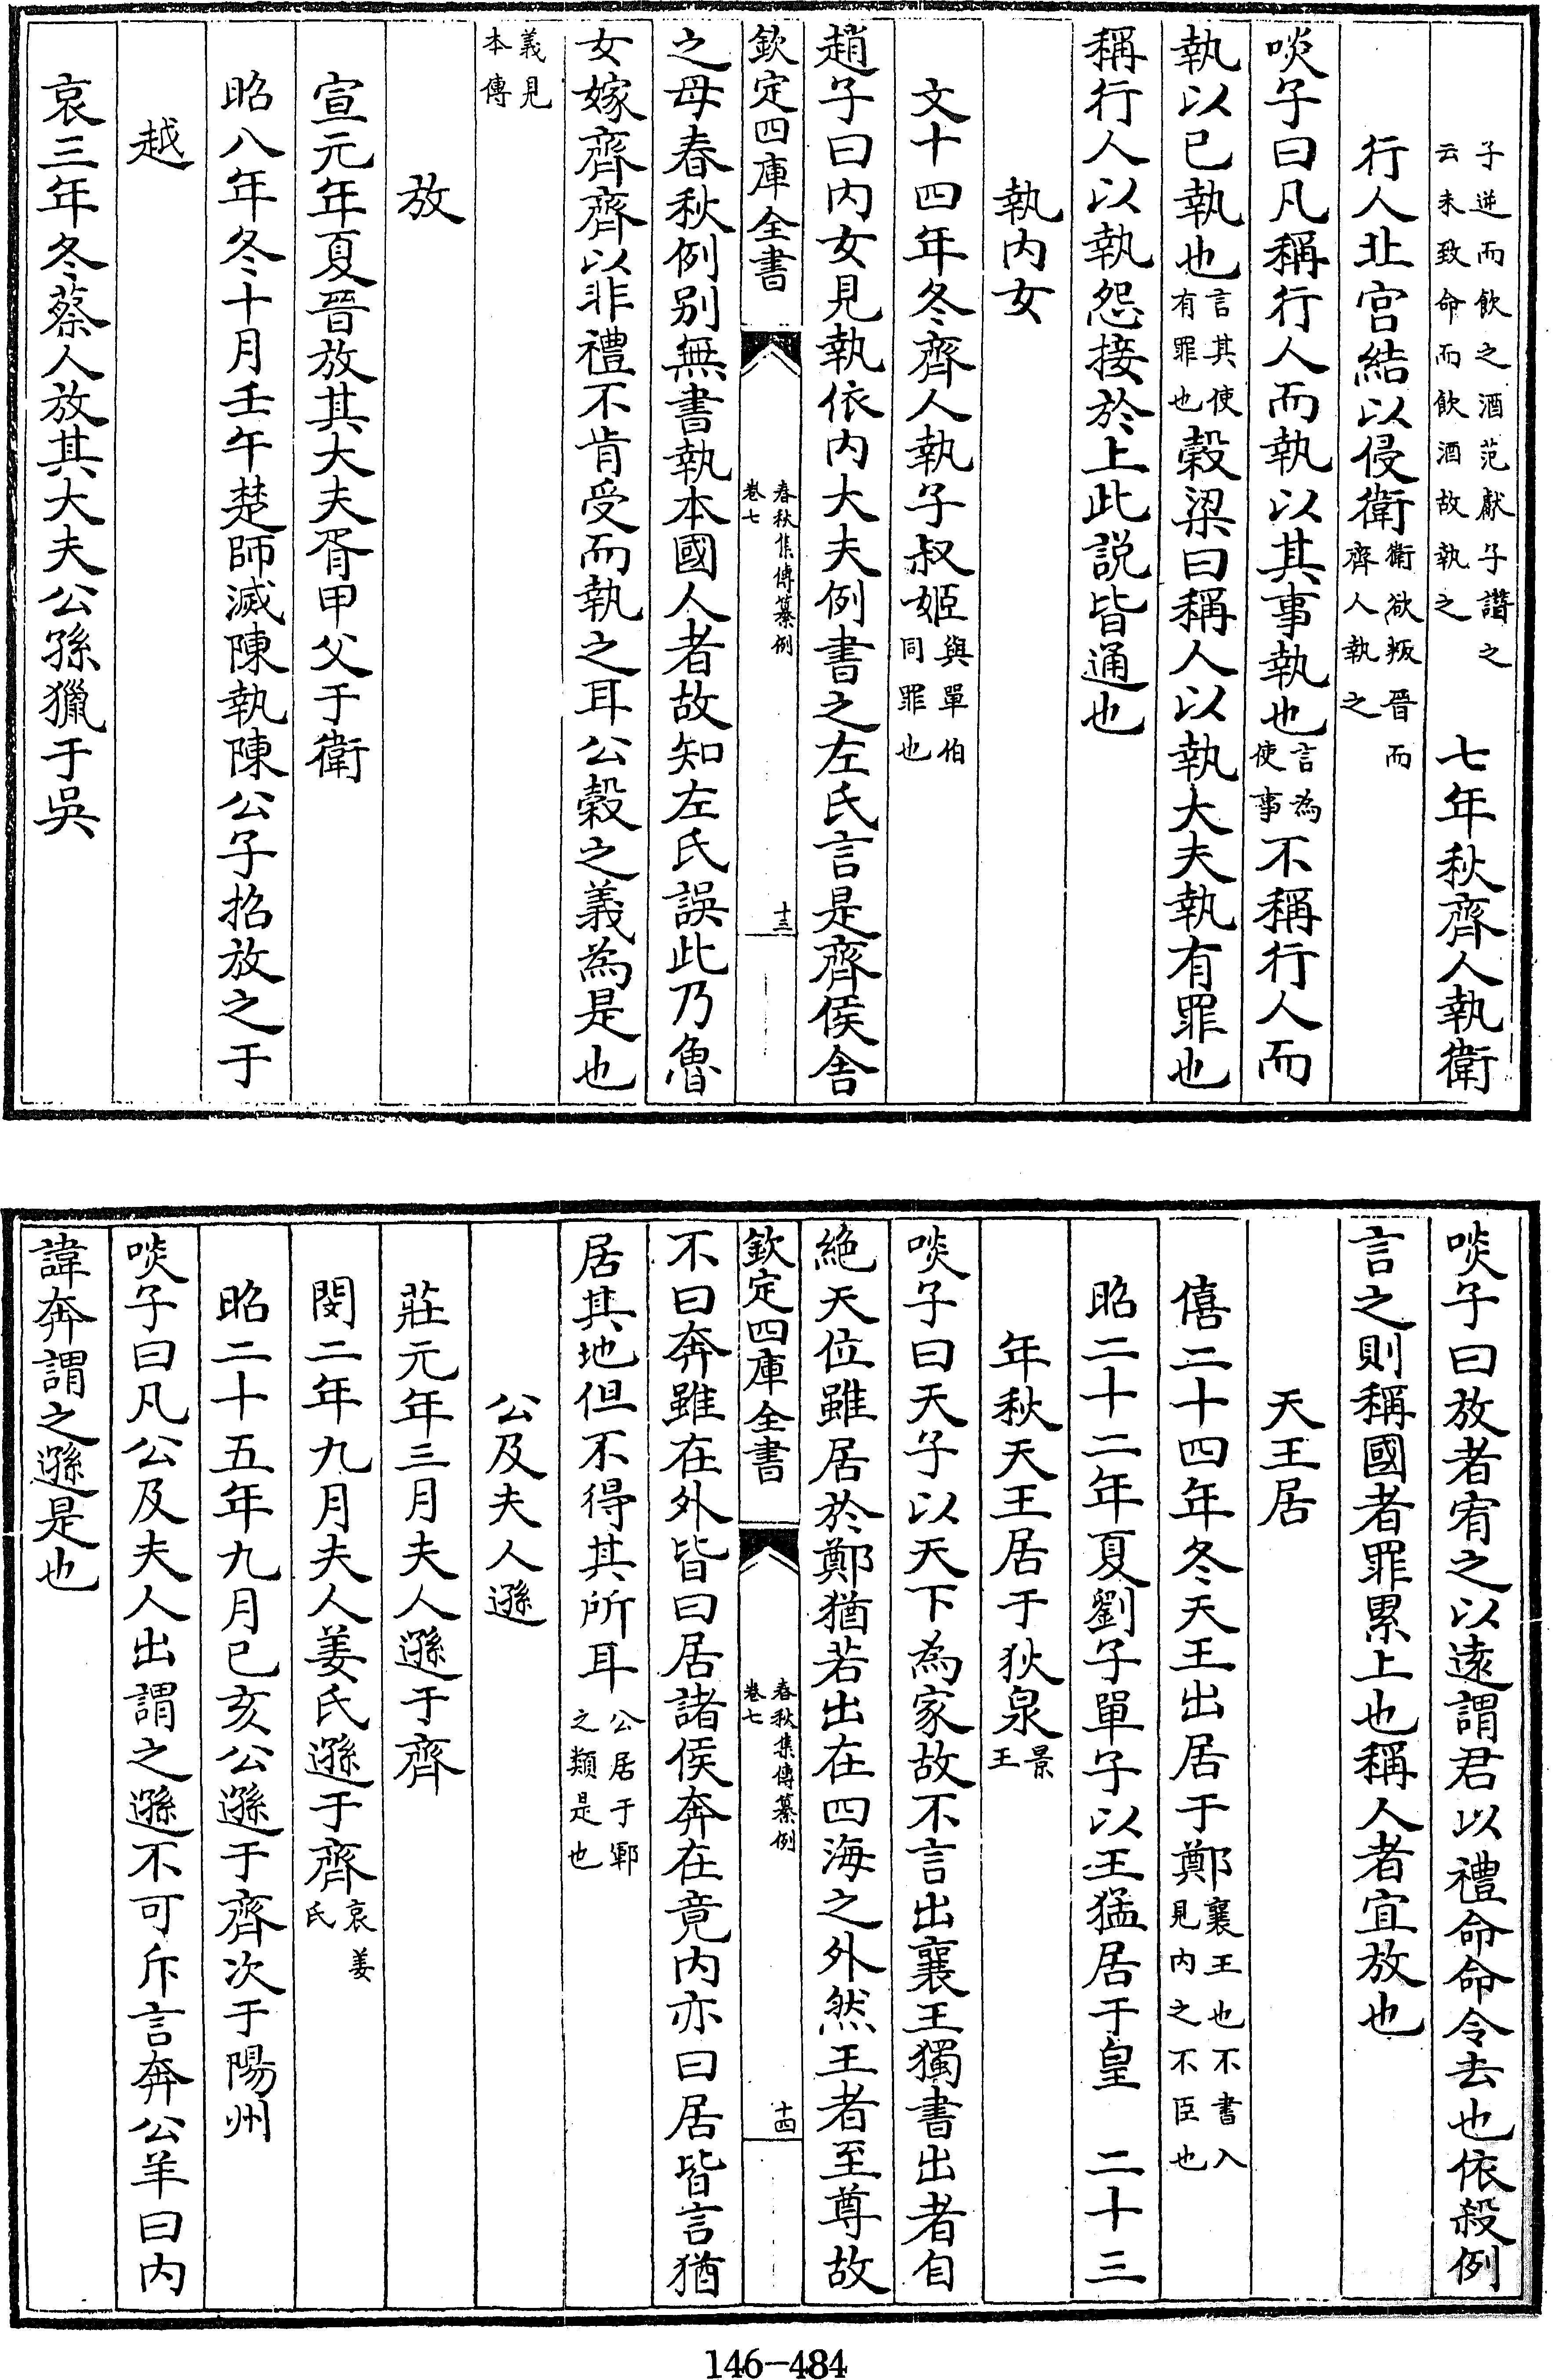 子逆而飲之酒范獻子譖之
云未致命而飲酒故執之 七年秋齊人執衛
行人北宫結以侵衛衛欲叛晉而齊人執之
啖子曰凡稱行人而執以其事執也言為使事不稱行人而
執以已執也言其使有罪也穀梁曰稱人以執大夫執有罪也
稱行人以執怨接於上此説皆通也
執内女
文十四年冬齊人執子叔姬與單伯同罪也
趙子曰内女見執依内大夫例書之左氏言是齊侯舎
欽定四庫全書 春秋集傳纂例卷七 十三
之母春秋例别無書執本國人者故知左氏誤此乃魯
女嫁齊齊以非禮不肯受而執之耳公穀之義為是也
義見本傳
放
宣元年夏晉放其大夫胥甲父于衛
昭八年冬十月壬午楚師滅陳執陳公子招放之于
越
哀三年冬蔡人放其大夫公孫獵于吳
啖子曰放者宥之以遠謂君以禮命命令去也依殺例
言之則稱國者罪累上也稱人者宜放也
天王居
僖二十四年冬天王出居于鄭襄王也不書入見内之不臣也
昭二十二年夏劉子單子以王猛居于皇 二十三
年秋天王居于狄泉景王
啖子曰天子以天下為家故不言出襄王獨書出者自
絶天位雖居於鄭猶若出在四海之外然王者至尊故
欽定四庫全書 春秋集傳纂例卷七 十四
不曰奔雖在外皆曰居諸侯奔在竟内亦曰居皆言猶
居其地但不得其所耳公居于鄆之類是也
公及夫人遜
莊元年三月夫人遜于齊
閔二年九月夫人姜氏遜于齊哀姜氏
昭二十五年九月已亥公遜于齊次于陽州
啖子曰凡公及夫人出謂之遜不可斥言奔公羊曰内
諱奔謂之遜是也
146-484